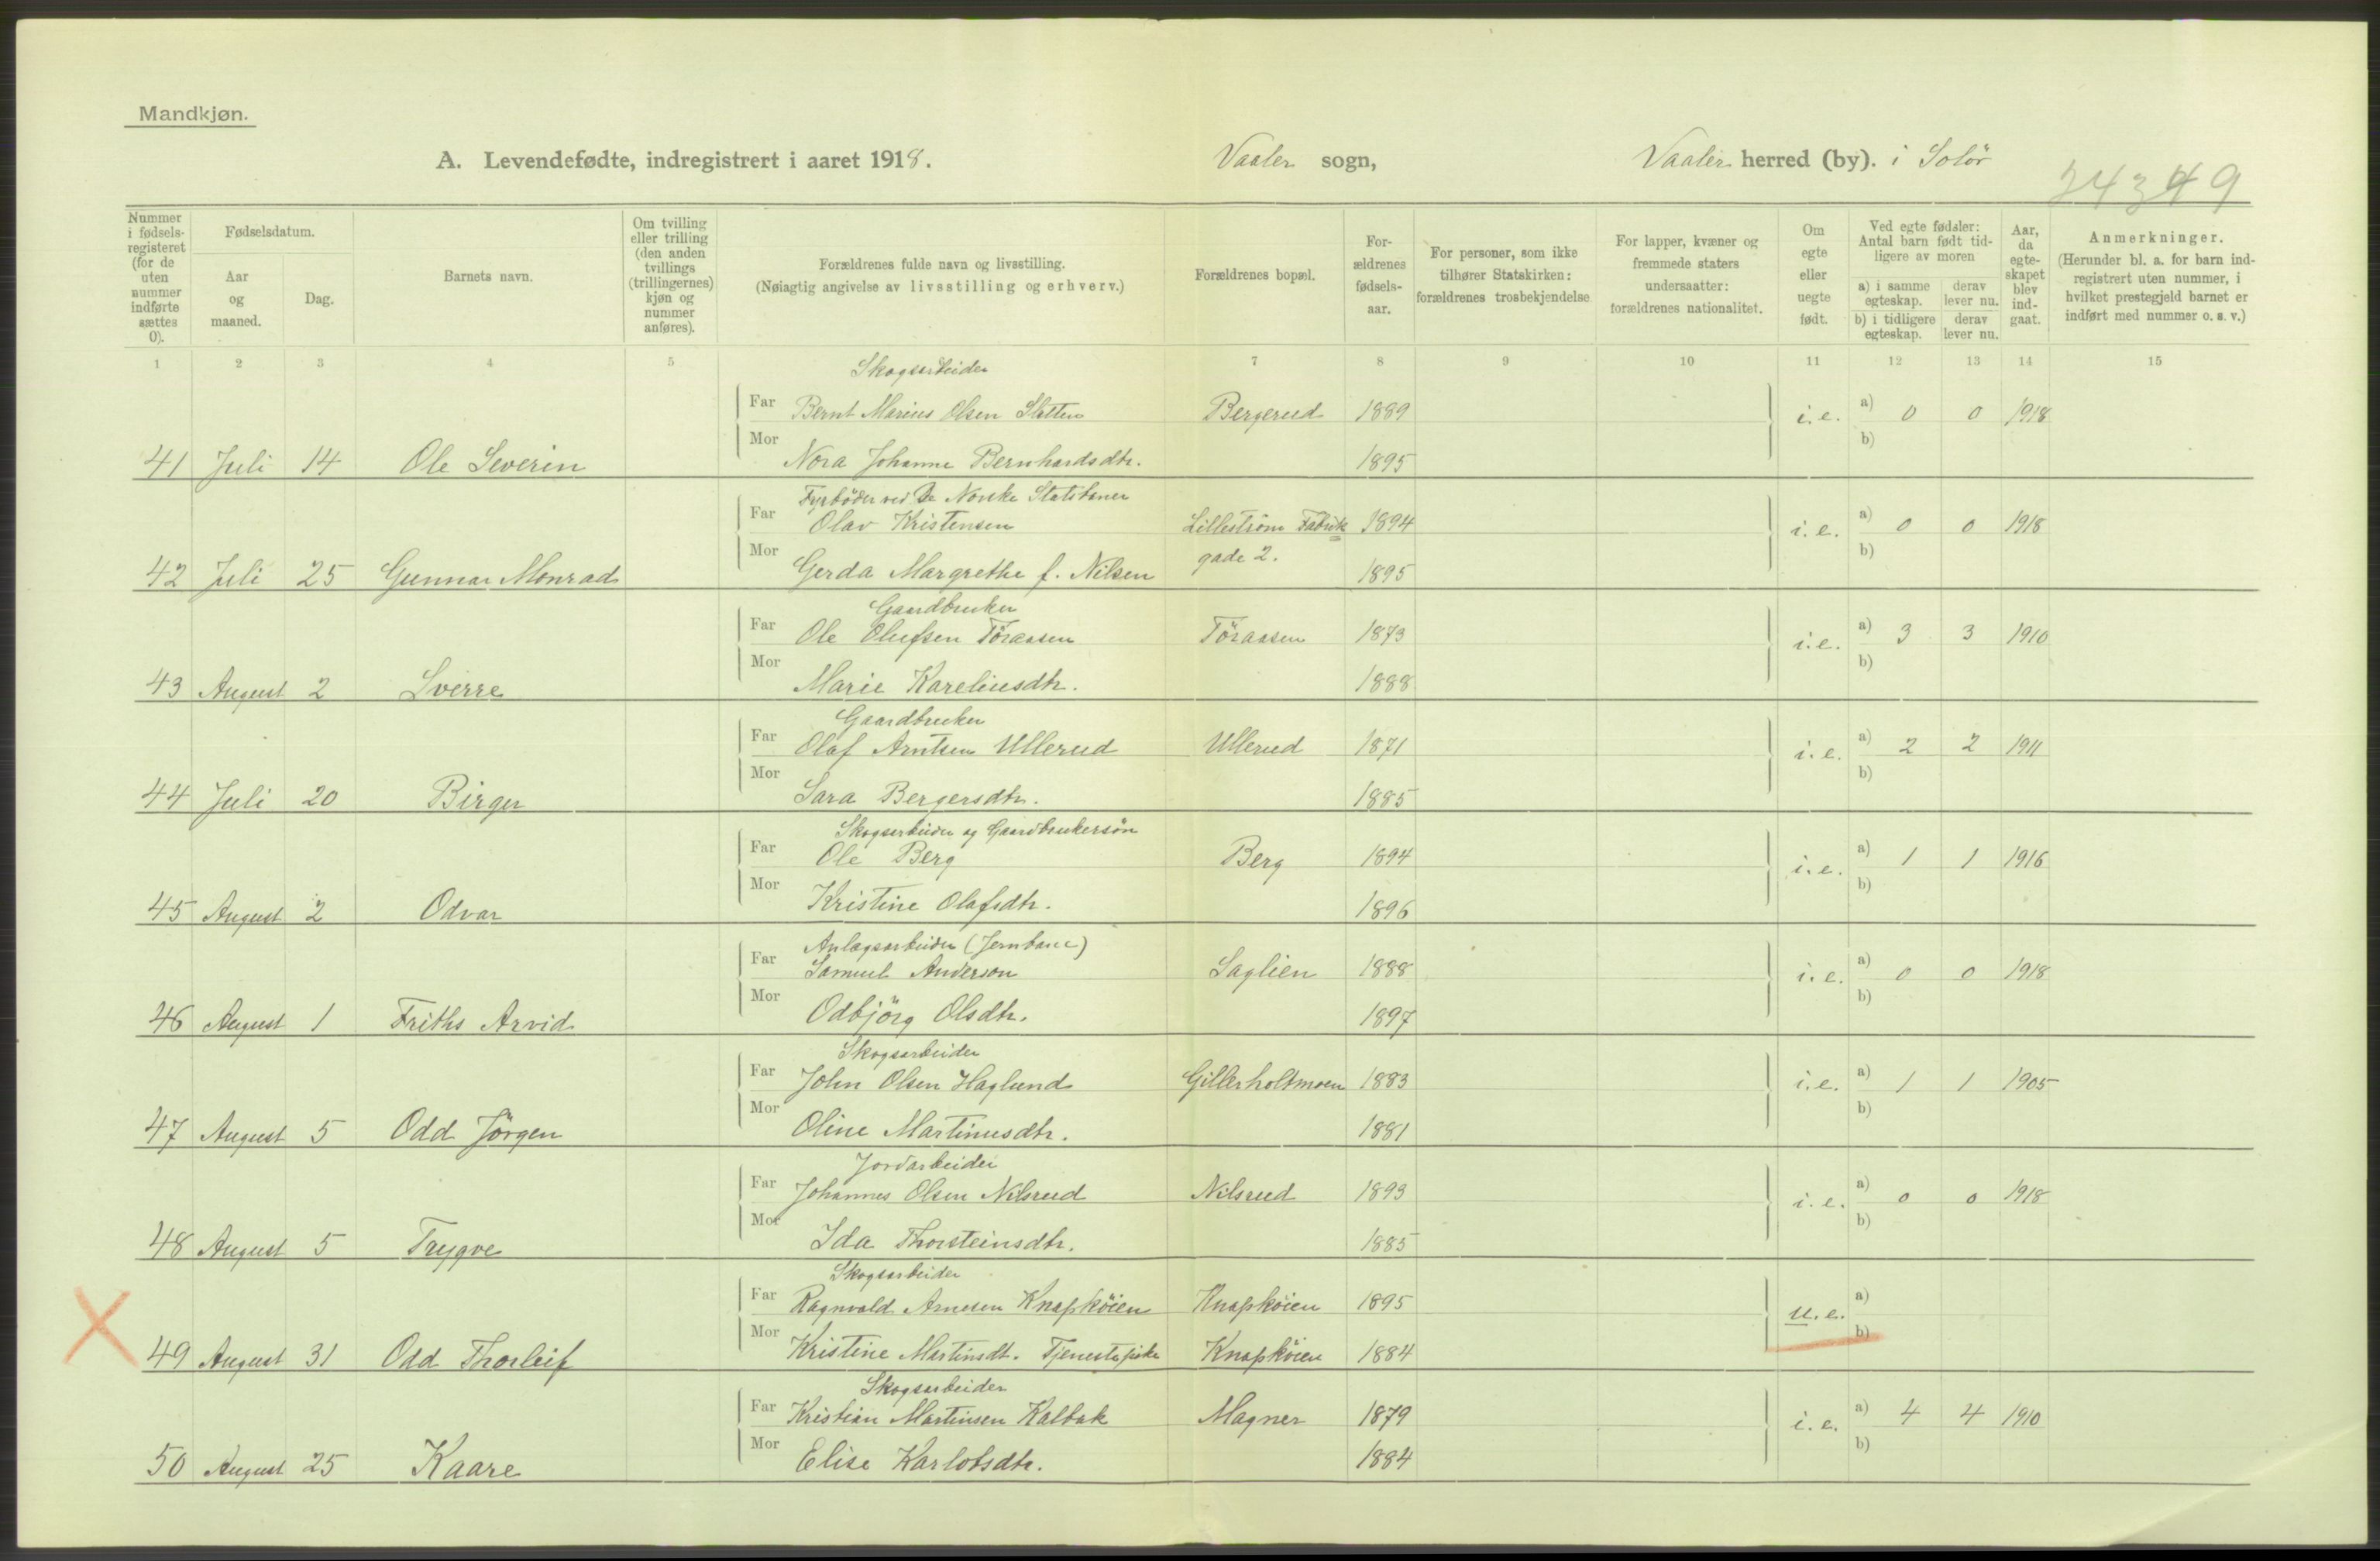 Mandkjøn.
A. Levendefødte, indregistrert i aaret 1918. Vaaler sogn, Vaaler herred (by). i Solör
Nummer i fødsels-registeret (for de uten nummer indførte sættes 0).
Fødselsdatum.
Aar og maaned.
Dag.
Barnets navn.
Om tvilling eller trilling (den anden tvillings (trillingernes) kjøn og nummer anføres).
Forældrenes fulde navn og livsstilling.
(Nøiagtig angivelse av livsstilling og erhverv.)
Forældrenes bopæl.
For-ældrenes fødsels-aar.
For personer, som ikke tilhører Statskirken: forældrenes trosbekjendelse
For lapper, kvæner og fremmede staters undersaatter: forældrenes nationalitet.
Om egte eller uegte født.
Ved egte fødsler: Antal barn født tid-ligere av moren
a) i samme egteskap. derav lever nu.
b) i tidligere egteskap. derav lever nu.
Aar, da egte-skapet blev ind-gaat.
Anmerkninger.
(Herunder bl. a. for barn ind-registrert uten nummer, i hvilket prestegjeld barnet er indført med nummer o. s. v.)
1 2 3 4 5 7 8 9 10 11 12 13 14 15
Skogsarbeider
Far Bernt Marius Olsen Sletten Bergerud 1889 i.e. a) 0 0 1918
b)
41 Juli 14 Ole Severin Mor Nora Johanne Bernhardsdtr. 1895
Fyrböder ved De Norske Statsbaner
Far Olav Kristensen Lilleström Fabrik 1894 i.e. a) 0 0 1918
gade 2. b)
42 Juli 25 Gunnar Monrad Mor Gerda Margrethe f. Nilsen 1895
Gaardbruker
Far Ole Olufsen Töraasen Töraasen 1873 i.e. a) 3 3 1910
b)
43 August 2 Sverre Mor Marie Kareliusdtr. 1888
Gaardbruker
Far Olaf Arntsen Ullerud Ullerud 1871 i.e. a) 2 2 1911
b)
44 Juli 20 Birger Mor Sara Bergersdtr. 1885
Skogsarbeider og Gaardbrukersön
Far Ole Berg Berg 1894 i.e. a) 1 1 1916
b)
45 August 2 Odvar Mor Kristine Olafsdtr. 1896
Anlægsarbeider (Jernbane)
Far Samuel Anderson Saglien 1888 i.e. a) 0 0 1918
b)
46 August 1 Friths Arvid Mor Odbjörg Olsdtr. 1897
Skogsarbeider
Far John Olsen Haglund Gillerholtmoen 1883 i.e. a) 1 1 1905
b)
47 August 5 Odd Jörgen Mor Oline Martinusdtr. 1881
Jordarbeider
Far Johannes Olsen Nilsrud Nilsrud 1893 i.e. a) 0 0 1918
b)
48 August 5 Trygve Mor Ida Thorsteinsdtr. 1885
Skogsarbeider
Far Ragnvald Arnesen Knapköien Knapköien 1895 u.e. a)
b)
49 August 31 Odd Thorleif Mor Kristine Martinsdt. Tjenestepike Knapköien 1884
Skogsarbeider
Far Kristian Martinsen Kalbak Magner 1879 i.e. a) 4 4 1910
b)
50 August 25 Kaare Mor Elise Karlotsdtr. 1884